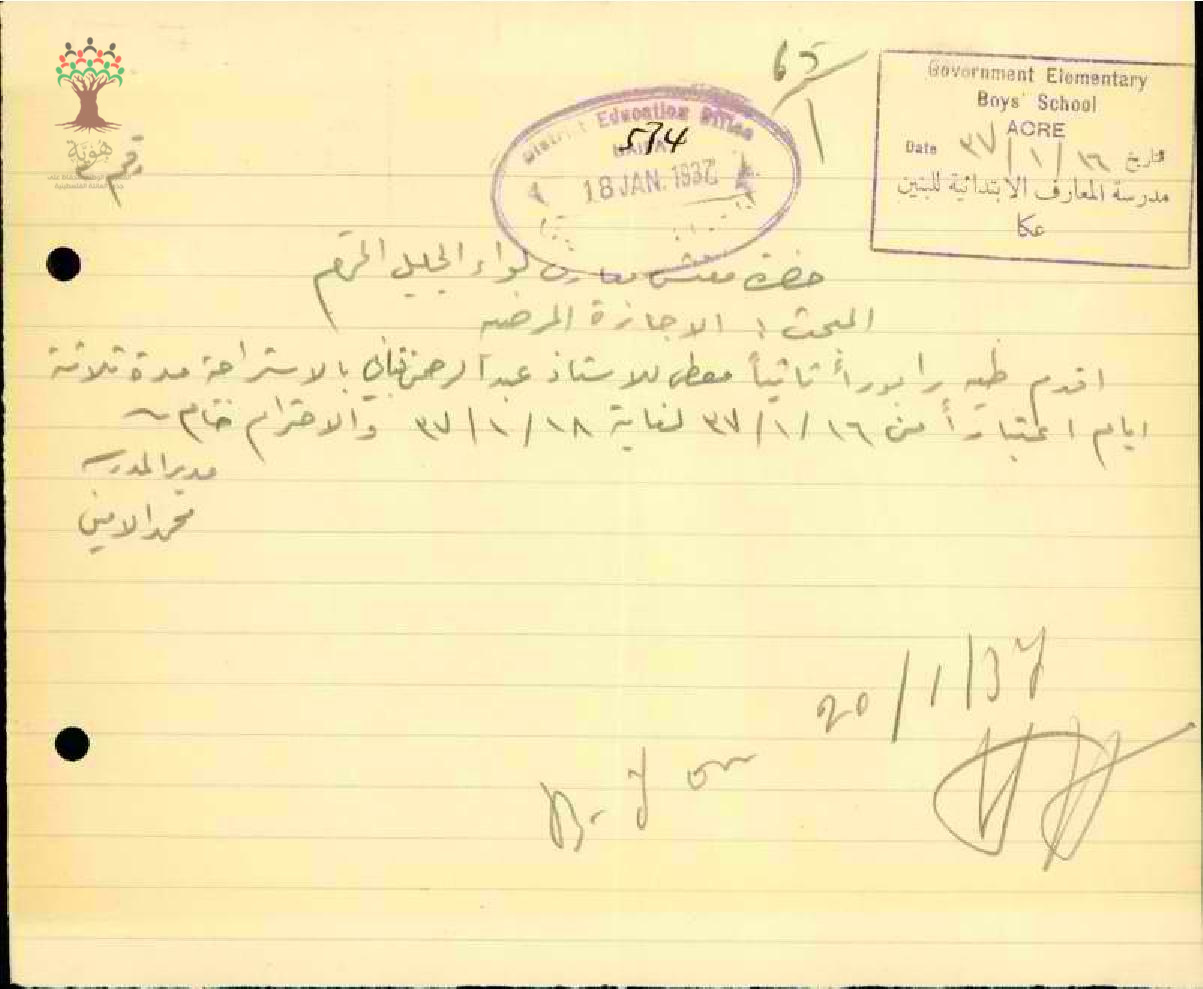 Government Elementary
Boys' School
ACRE
Date ٣٧/١/١٦ تاريخ
مدرسة المعارف الابتدائية للبنين
عكا
65/1
District Education Office
HAIFA
574
18 JAN. 1937
هوية
حضرة مفتش معارف لواء الجليل المحترم
المبحث : الاجازة المرضيه
اقدم طيه رابوراً ثانياً معطى للاستاذ عبد الرحمن بالاستراحة مدة ثلاثة
ايام اعتباراً من ٣٧/١/١٦ لغاية ٣٧/١/١٨ والاحترام ختام
مدير المدرسه
محمد الامين
20/1/37